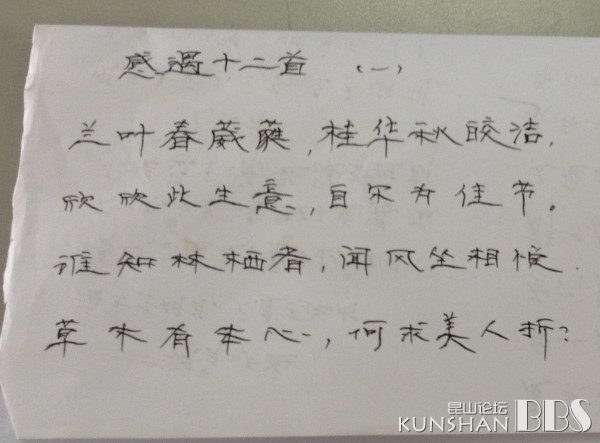 感遇十二首 （一）
兰叶春葳蕤，桂华秋皎洁，
欣欣此生意，自尔为佳节。
谁知林栖者，闻风坐相悦.
草木有本心，何求美人折？
昆山论坛
KUNSHAN BBS